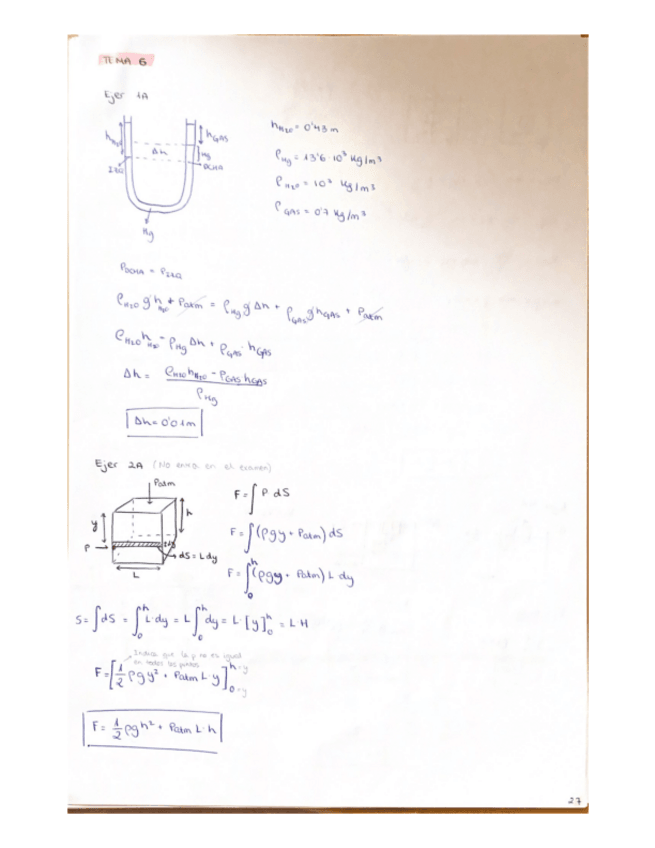 TEMA 6
Ejer 1A
hH2O = 0'43 m
hH2O
hGAS
Δh
Hg
IZQ
DCHA
ρHg = 13'6 · 10³ Kg/m³
ρH2O = 10³ Kg/m³
ρGAS = 0'7 Kg/m³
Hg
PDCHA = PIZQ
ρH2O g hH2O + Patm = ρHg g Δh + ρGAS g hGAS + Patm
ρH2O hH2O = ρHg Δh + ρGAS · hGAS
Δh = ρH2O hH2O - ρGAS hGAS
ρHg
Δh = 0'01m
Ejer 2A (No entra en el examen)
Patm
F = ∫ P dS
h
y
F = ∫ (ρgy + Patm) dS
P
dS
dS = L dy
F = ∫₀ʰ (ρgy + Patm) L · dy
L
S = ∫ dS = ∫₀ʰ L · dy = L ∫₀ʰ dy = L · [y]₀ʰ = L H
Indica que la p no es igual
en todos los puntos
F = [1/2 ρgy² + Patm L · y]₀ʰ
F = 1/2 ρgh² + Patm L · h
27